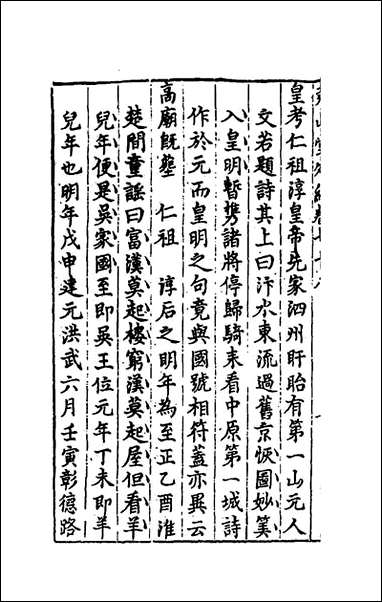 皇考仁祖淳皇帝先家泗州盱眙有第一山元人
文若題詩其上曰汴水東流過舊京恢圖妙筭
入皇明暫攜諸將停歸騎來看中原第一城詩
作於元而皇明之句竟與國號相符蓋亦異云
高廟既塟 仁祖 淳后之明年為至正乙酉淮
楚間童謡曰富漢莫起樓窮漢莫起屋但看羊
兒年便是吳家國至即吳王位元年丁未即羊
兒年也明年戊申建元洪武六月壬寅彰德路